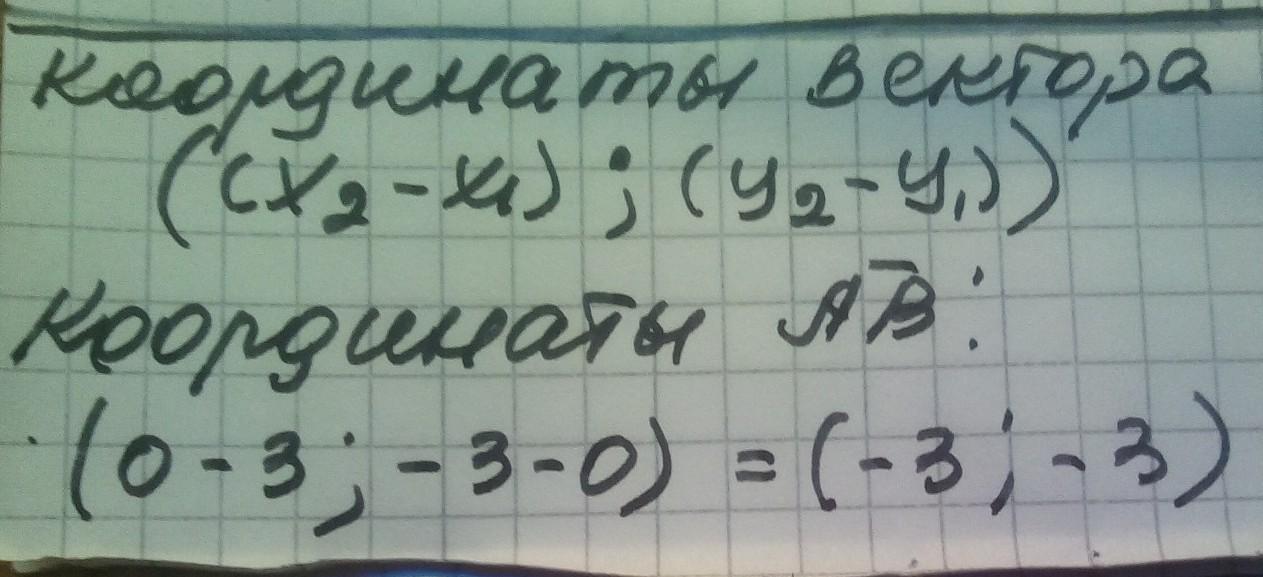 координаты вектора
((x₂-x₁);(y₂-y₁))
координаты AB̅:
(0-3;-3-0)=(-3;-3)